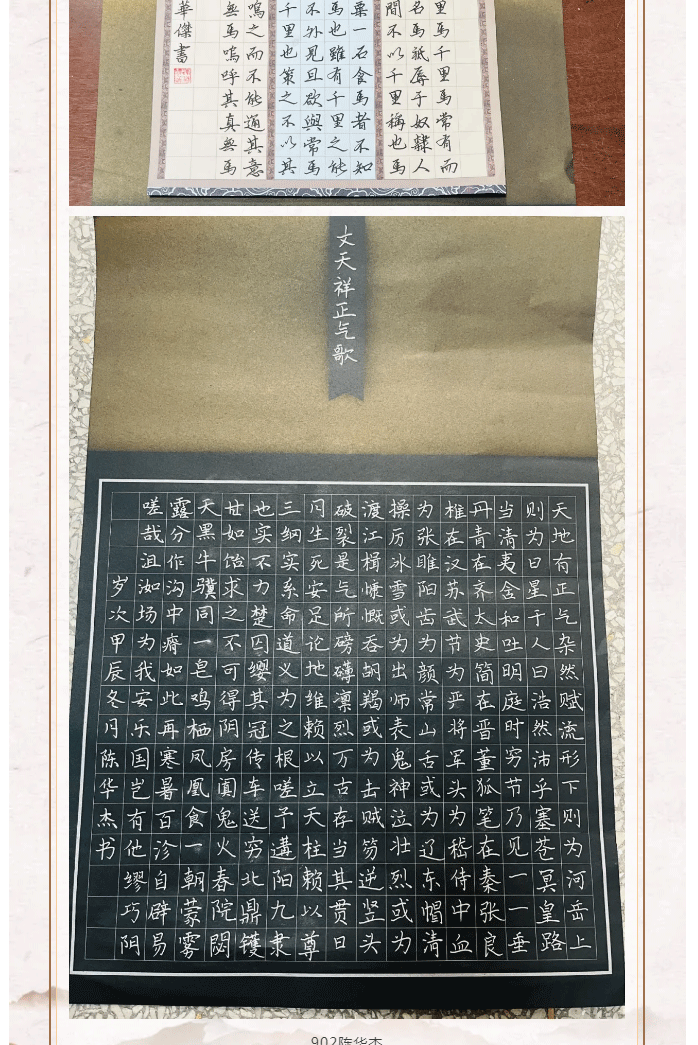 里馬千里馬常有而
名馬祇辱于奴隸人
間不以千里稱也馬
粟一石食馬者不知
馬也雖有千里之能
不外見且欲與常馬
千里也策之不以其
鳴之而不能通其意
無馬嗚呼其真無馬
華傑書
文天祥正气歌
天地有正气杂然赋流形下则为河岳上
则为日星于人曰浩然沛乎塞苍冥皇路
当清夷含和吐明庭时穷节乃见一一垂
丹青在齐太史简在晋董狐笔在秦张良
椎在汉苏武节为严将军头为嵇侍中血
为张睢阳齿为颜常山舌或为辽东帽清
操厉冰雪或为出师表鬼神泣壮烈或为
渡江楫慷慨吞胡羯或为击贼笏逆竖头
破裂是气所磅礴凛烈万古存当其贯日
月生死安足论地维赖以立天柱赖以尊
三纲实系命道义为之根嗟予遘阳九隶
也实不力楚囚缨其冠传车送穷北鼎镬
甘如饴求之不可得阴房阒鬼火春院閟
天黑牛骥同一皂鸡栖凤凰食一朝蒙雾
露分作沟中瘠如此再寒暑百沴自辟易
嗟哉沮洳场为我安乐国岂有他缪巧阴
岁次甲辰冬月陈华杰书
902陈华杰